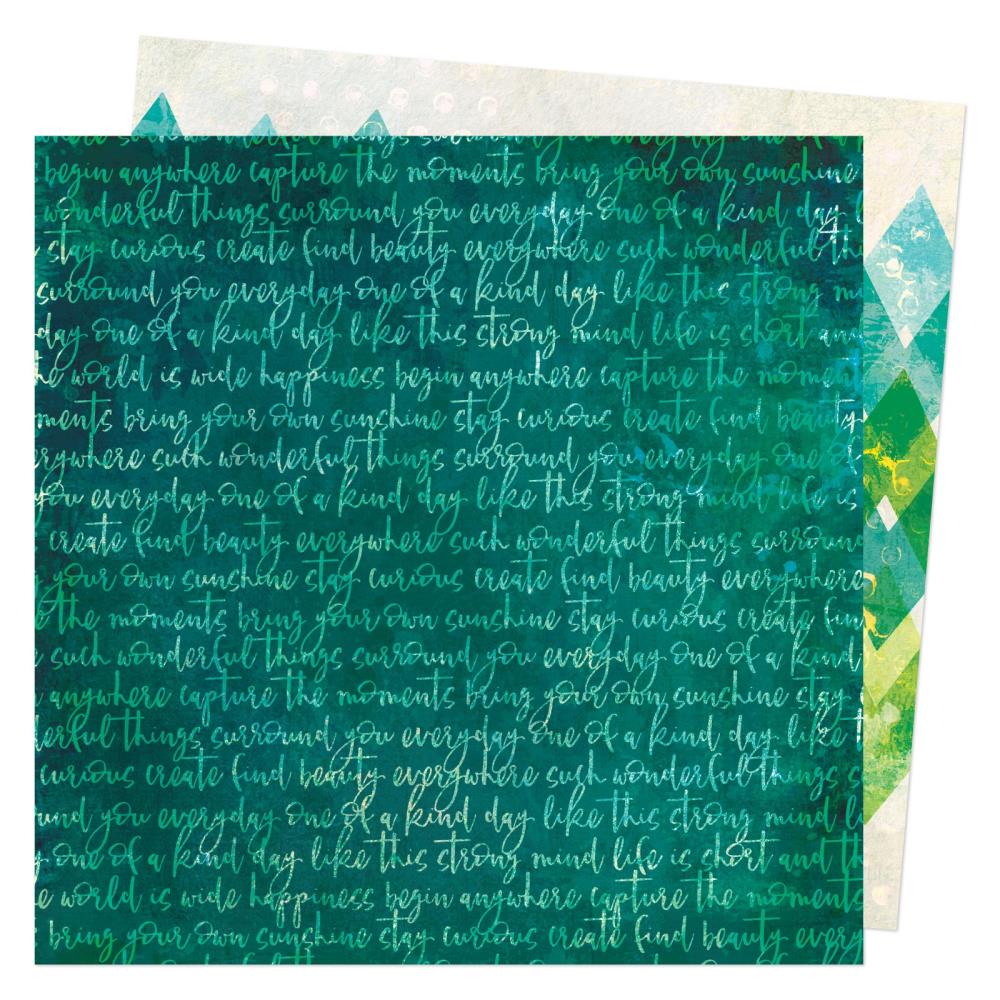 begin anywhere capture the moments bring your own sunshine
wonderful things surround you everyday one of a kind day l
stay curious create find beauty everywhere such wonderful th
surround you everyday one of a kind day like this strong m
day one of a kind day like this strong mind life is short an
he world is wide happiness begin anywhere capture the momen
ments bring your own sunshine stay curious create find beauty
rywhere such wonderful things surround you everyday one of
you everyday one of a kind day like this strong mind life is
create find beauty everywhere such wonderful things surround
your own sunshine stay curious create find beauty everywhere
the moments bring your own sunshine stay curious create fin
such wonderful things surround you everyday one of a kind
anywhere capture the moments bring your own sunshine stay
derful things surround you everyday one of a kind day like
curious create find beauty everywhere such wonderful things s
und you everyday one of a kind day like this strong mind l
one of a kind day like this strong mind life is short and th
e world is wide happiness begin anywhere capture the moments
bring your own sunshine stay curious create find beauty every